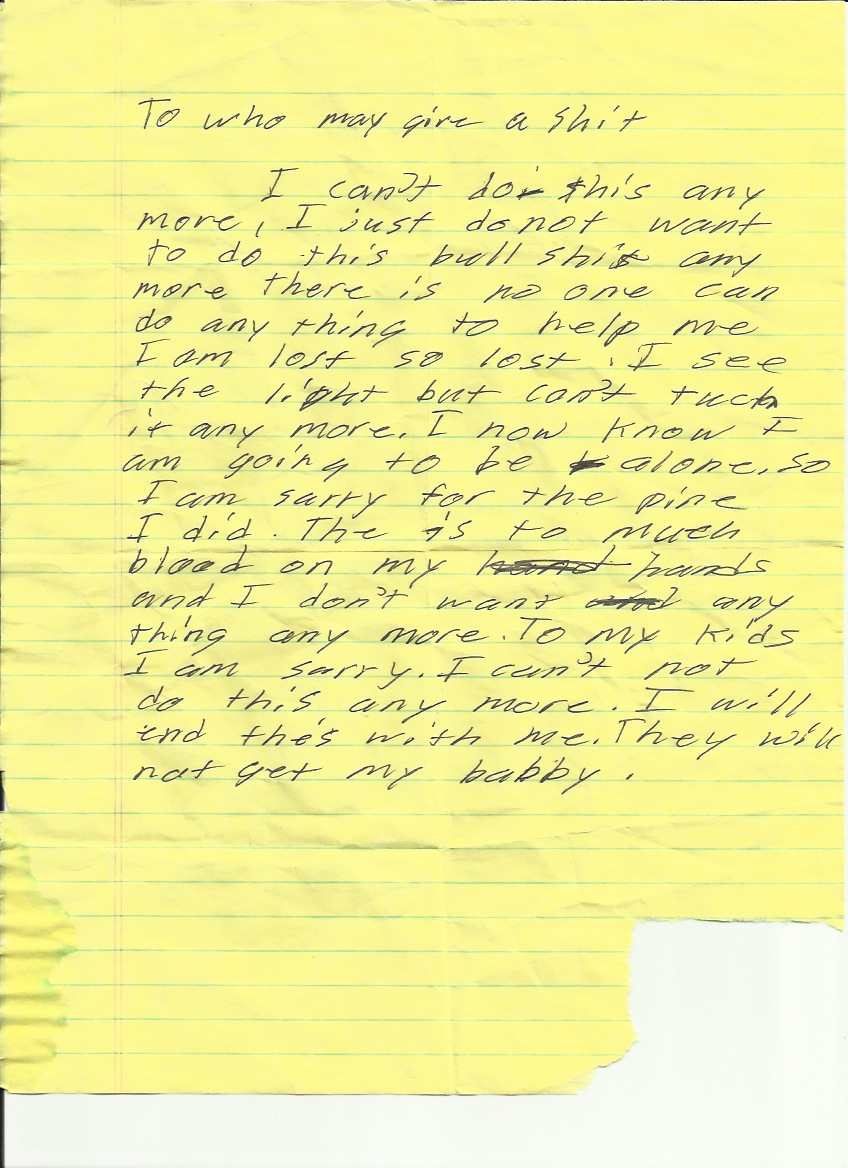 To who may give a shit
I can't do this any
more, I just do not want
to do this bull shit any
more there is no one can
do any thing to help me
I am lost so lost. I see
the light but can't tuch
it any more. I now know I
am going to be alone. so
I am sarry for the pine
I did. The is to much
blood on my hand hands
and I don't want and any
thing any more. To my kids
I am sarry. I can't not
do this any more. I will
end this with me. They will
not get my babby.